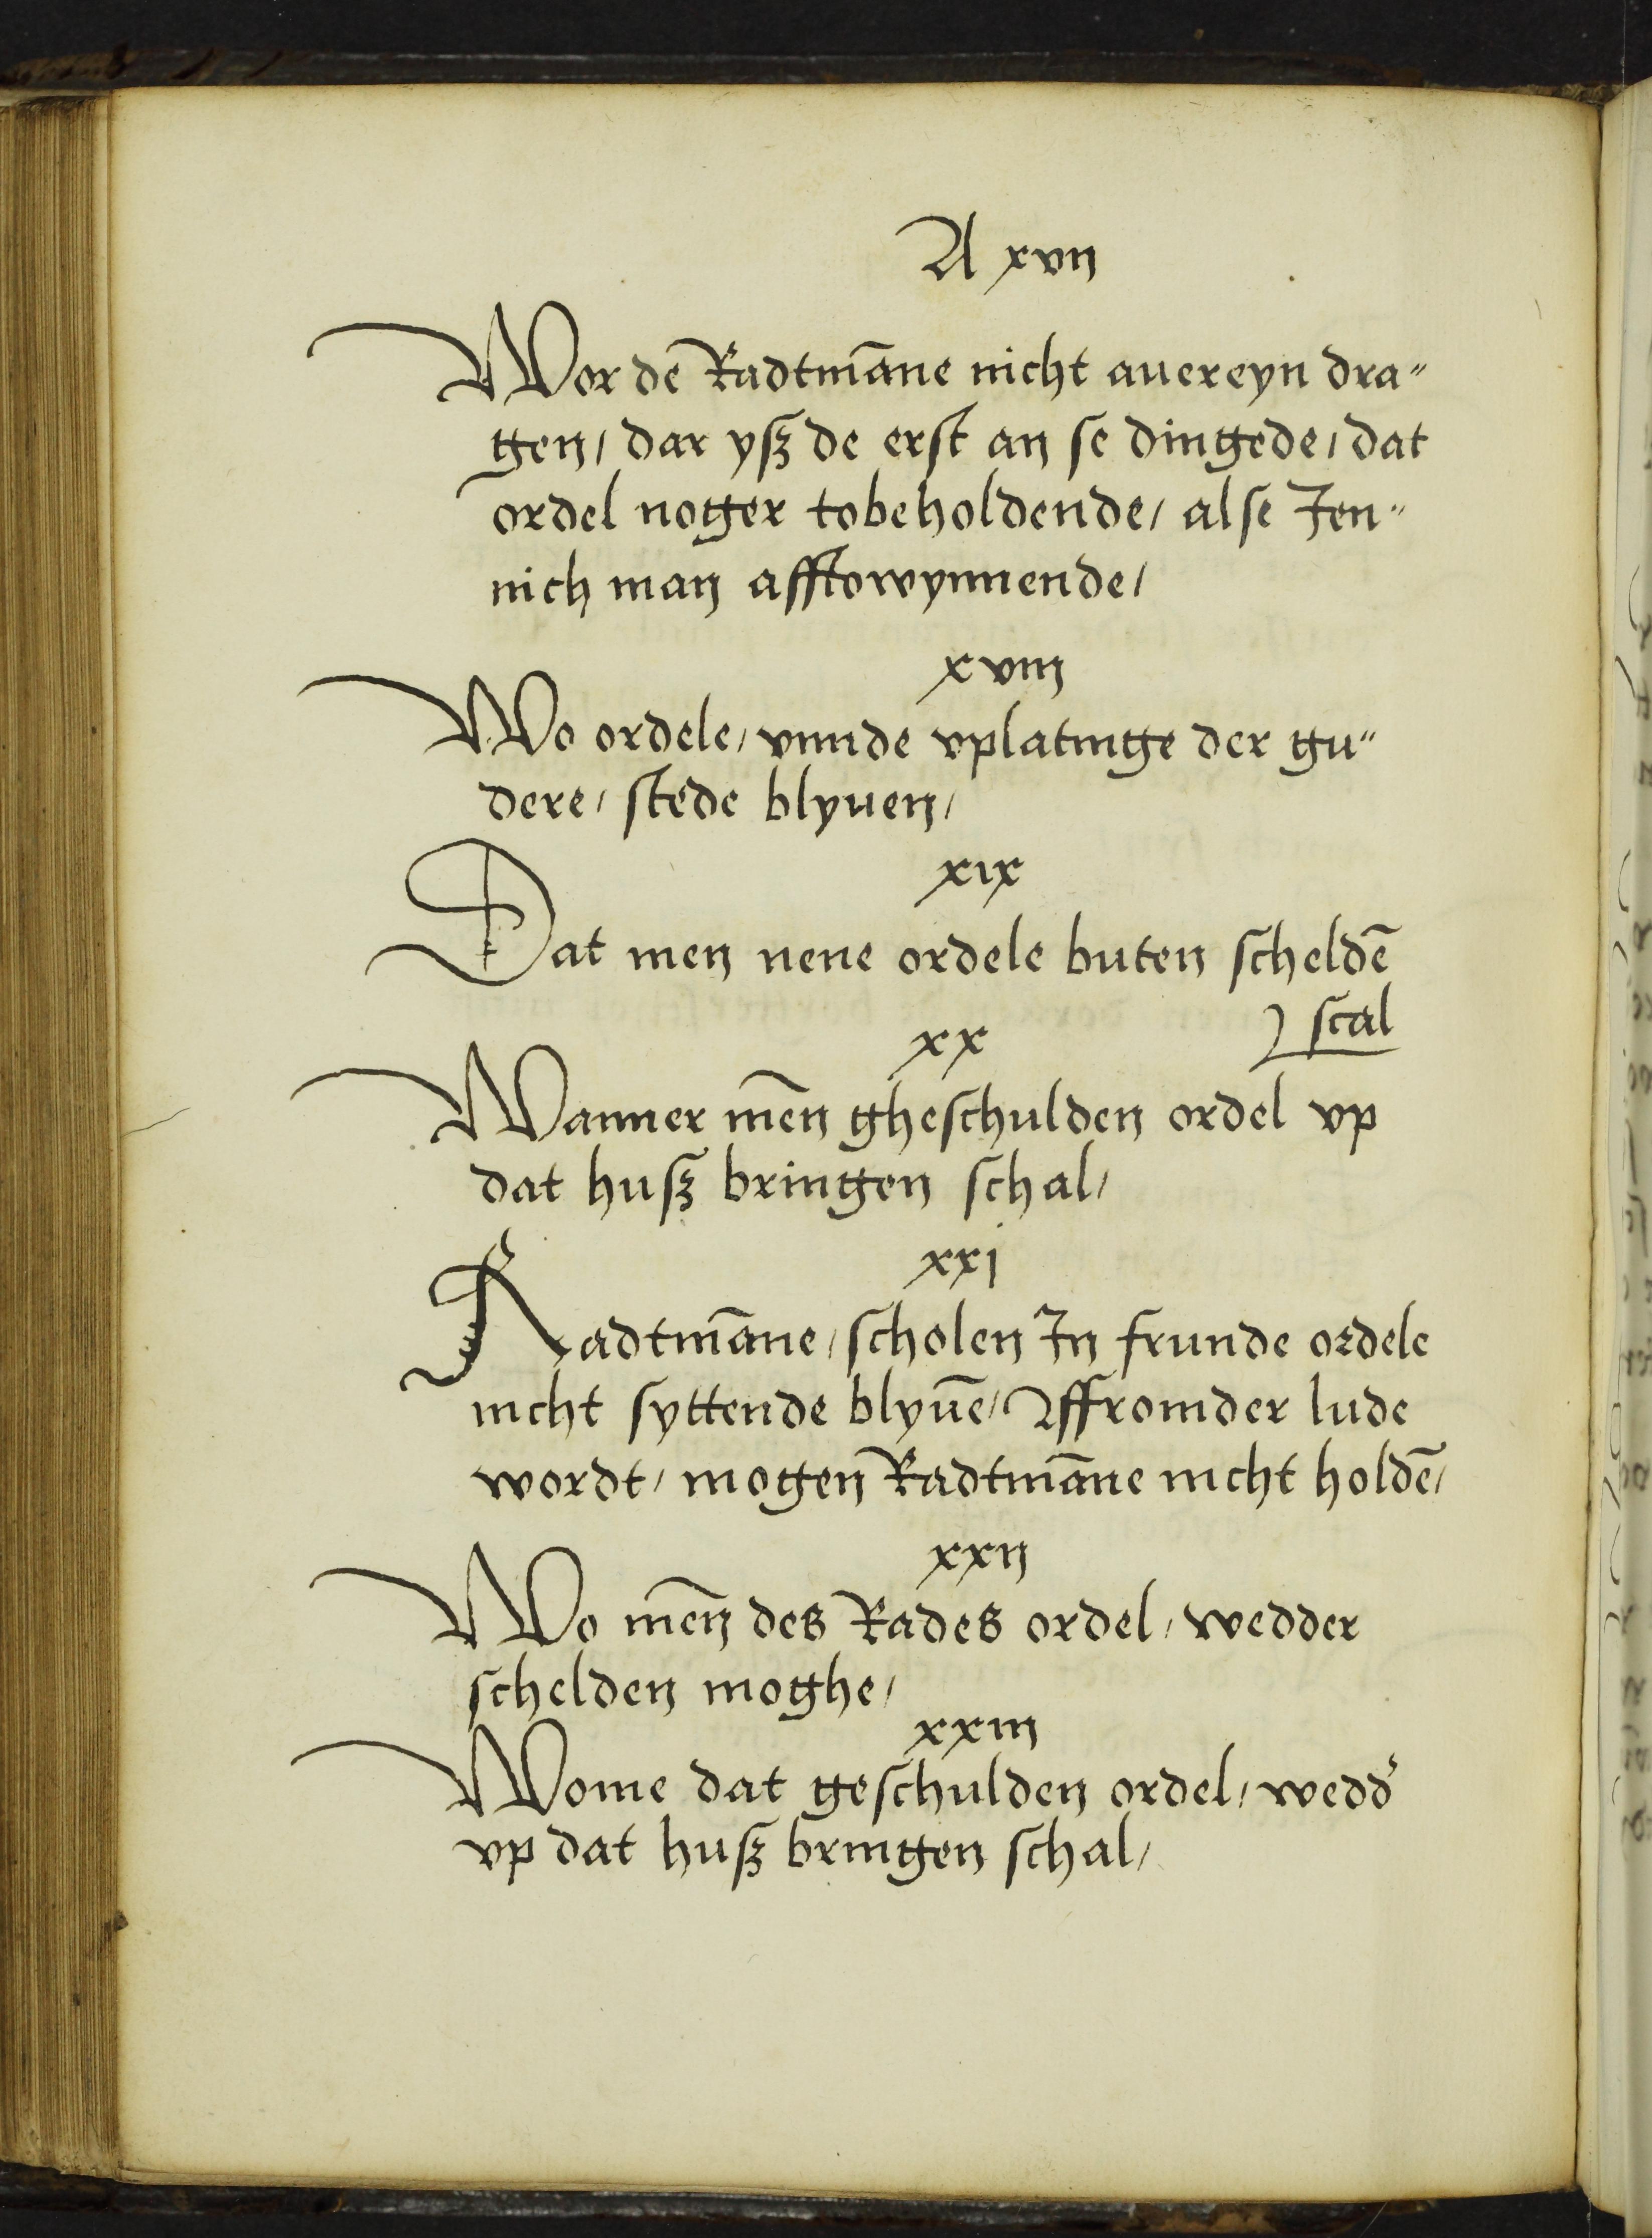 A xvij
Wor dē Radtmāne nicht auereyn dra"
gen/ dar yſz de erſt an ſe dingede/ dat
ordel noger tobeholdende/ alſe Jen"
nich man afftowynnende/
xviij
Wo ordele/ vnnde vplatinge der gu"
dere/ ſtede blyuen/
xix
Dat men nene ordele buten ſcheldē
ſcal
xx
Wanner mēn gheſchulden ordel vp
dat huſz bringen ſchal/
xxj
Radtmāne/ ſcholen Jn frunde ordele
nicht ſyttende blyuē/ Offromder lude
wordt/ mogen Radtmāne nicht holdē/
xxij
Wo mēn des Rades ordel/ wedder
ſchelden moghe/
xxiij
Wome dat geſchulden ordel/ wedd'
vp dat huſz bringen ſchal/